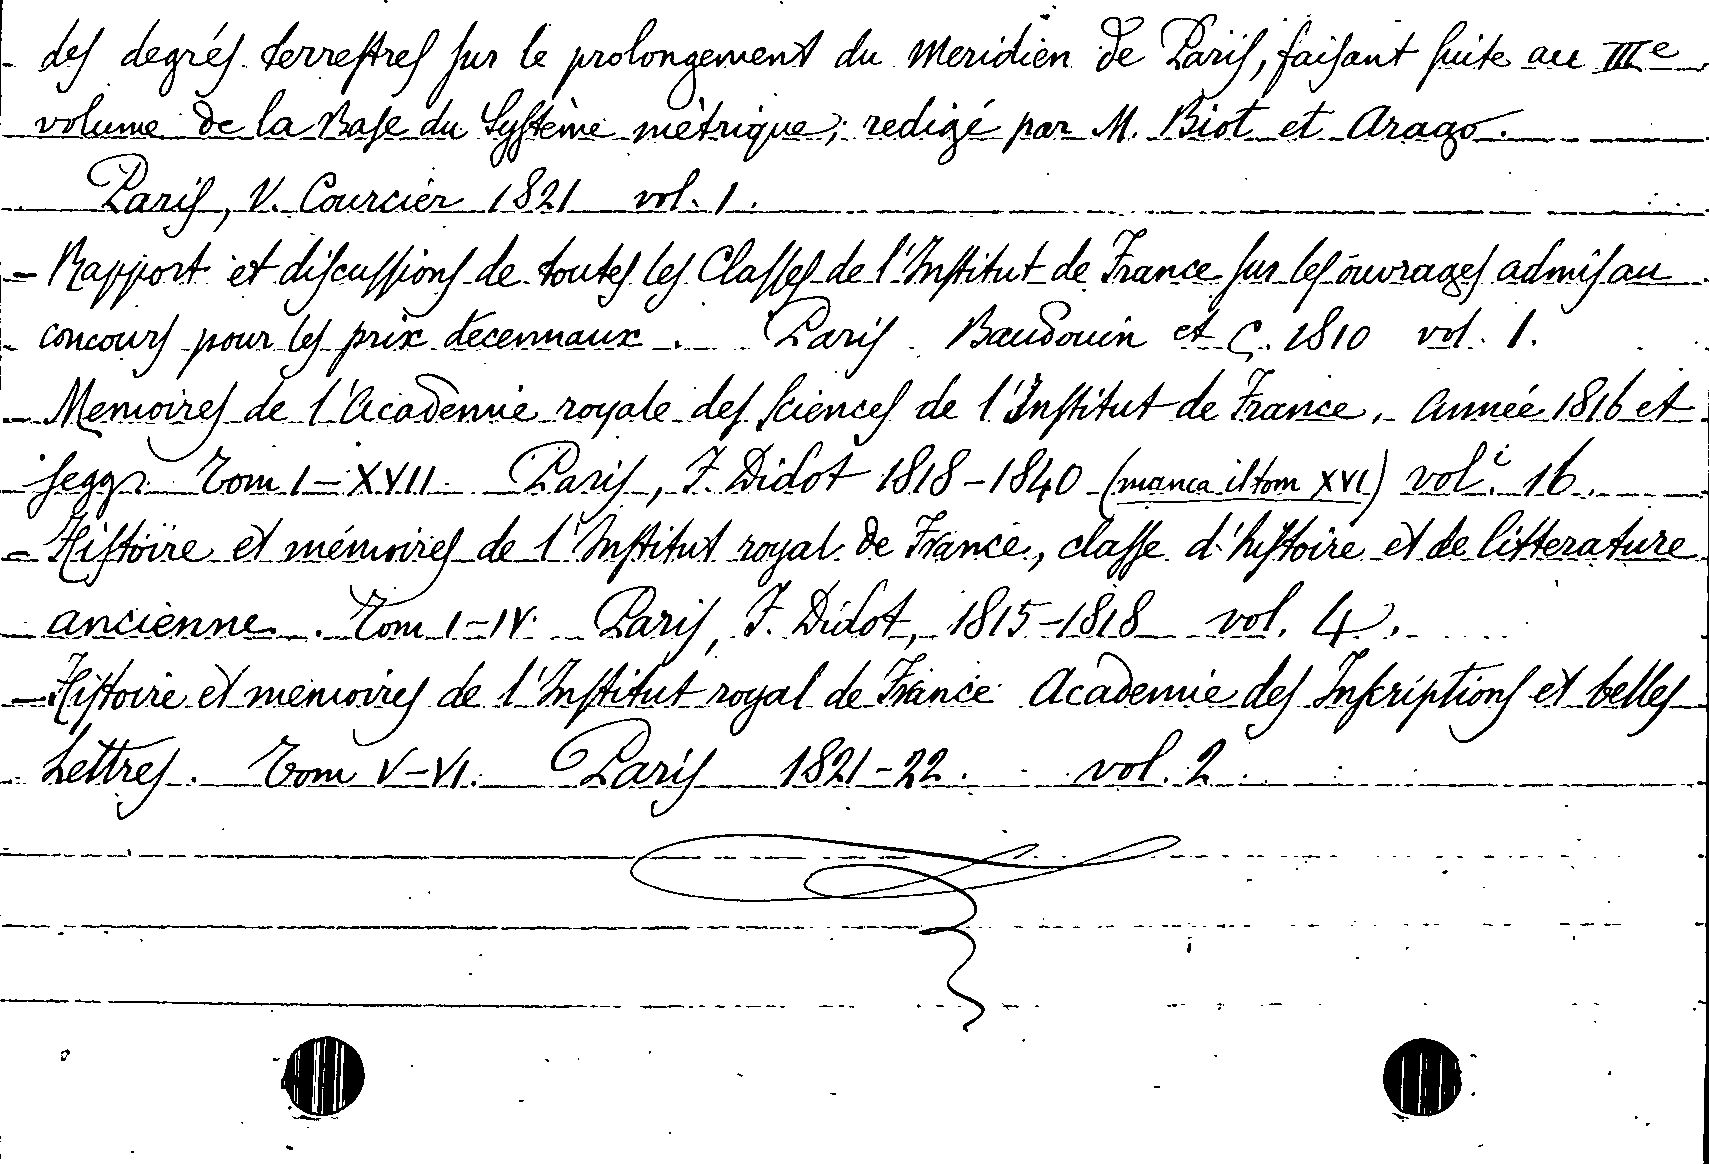 des degrés terrestres sur le prolongement du Meridien de Paris, faisant suite au IIIe
volume de la Base du Système mètrique; redigé par M. Biot et Arago.
Paris, V. Courcier 1821 vol. 1.
- Rapport et discussions de toutes les Classes de l'Institut de France sur les ouvrages admis au
concours pour les prix decennaux. Paris Baudouin et C. 1810 vol. 1.
- Memoires de l'Academie royale des sciences de l'Institut de France. Année 1816 et
seggi. Tom I-XVII. Paris, F. Didot 1818-1840 (manca il tom XVI) voli. 16.
- Histoire et mémoires de l'Institut royal de France, classe d'histoire et de litterature
ancienne. Tom I-IV. Paris, F. Didot, 1815-1818 vol. 4.
- Histoire et memoires de l'Institut royal de France Academie des Inscriptions et belles
Lettres. Tom V-VI. Paris 1821-22. vol. 2.